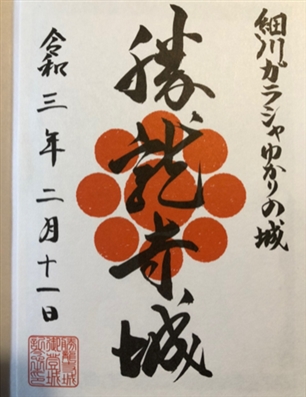 細川ガラシャゆかりの城
勝龍寺城
令和三年二月十一日